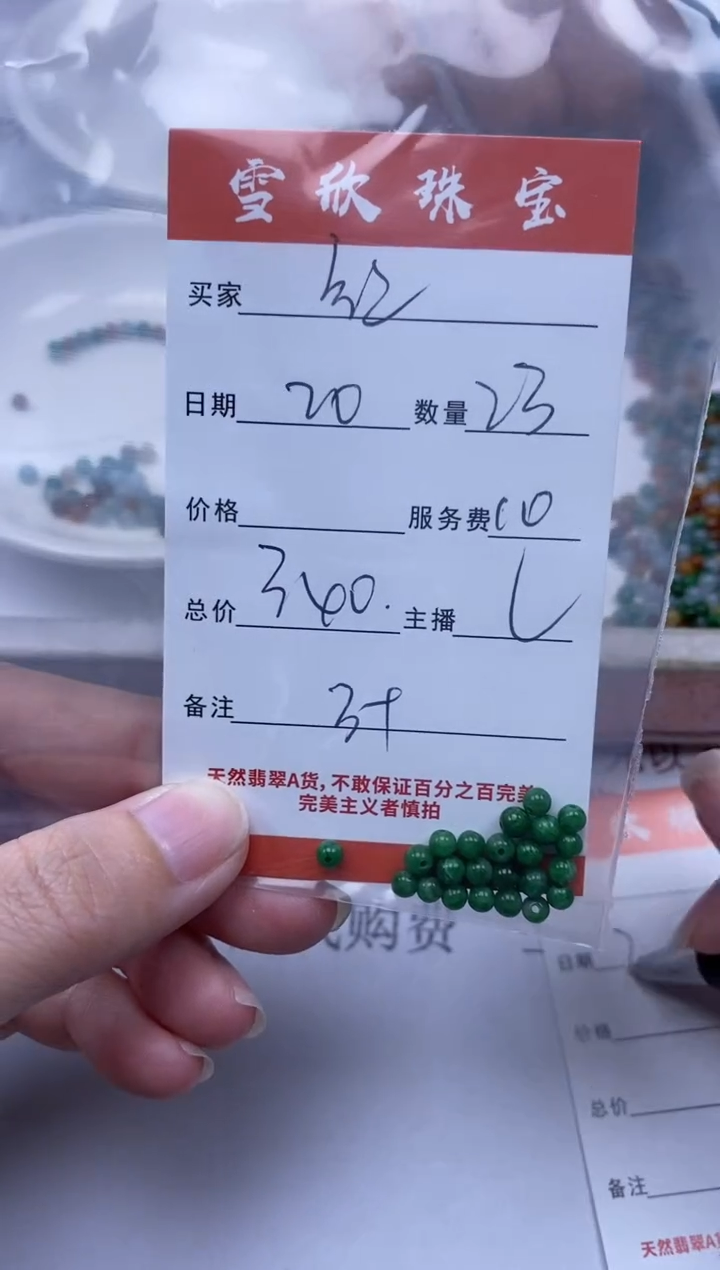 雪欣珠宝
买家 红
日期 20 数量 23
价格 服务费 10
总价 340. 主播 L
备注
天然翡翠A货，不敢保证百分之百完美
完美主义者慎拍
购费
日期
价格
总价
备注
天然翡翠A